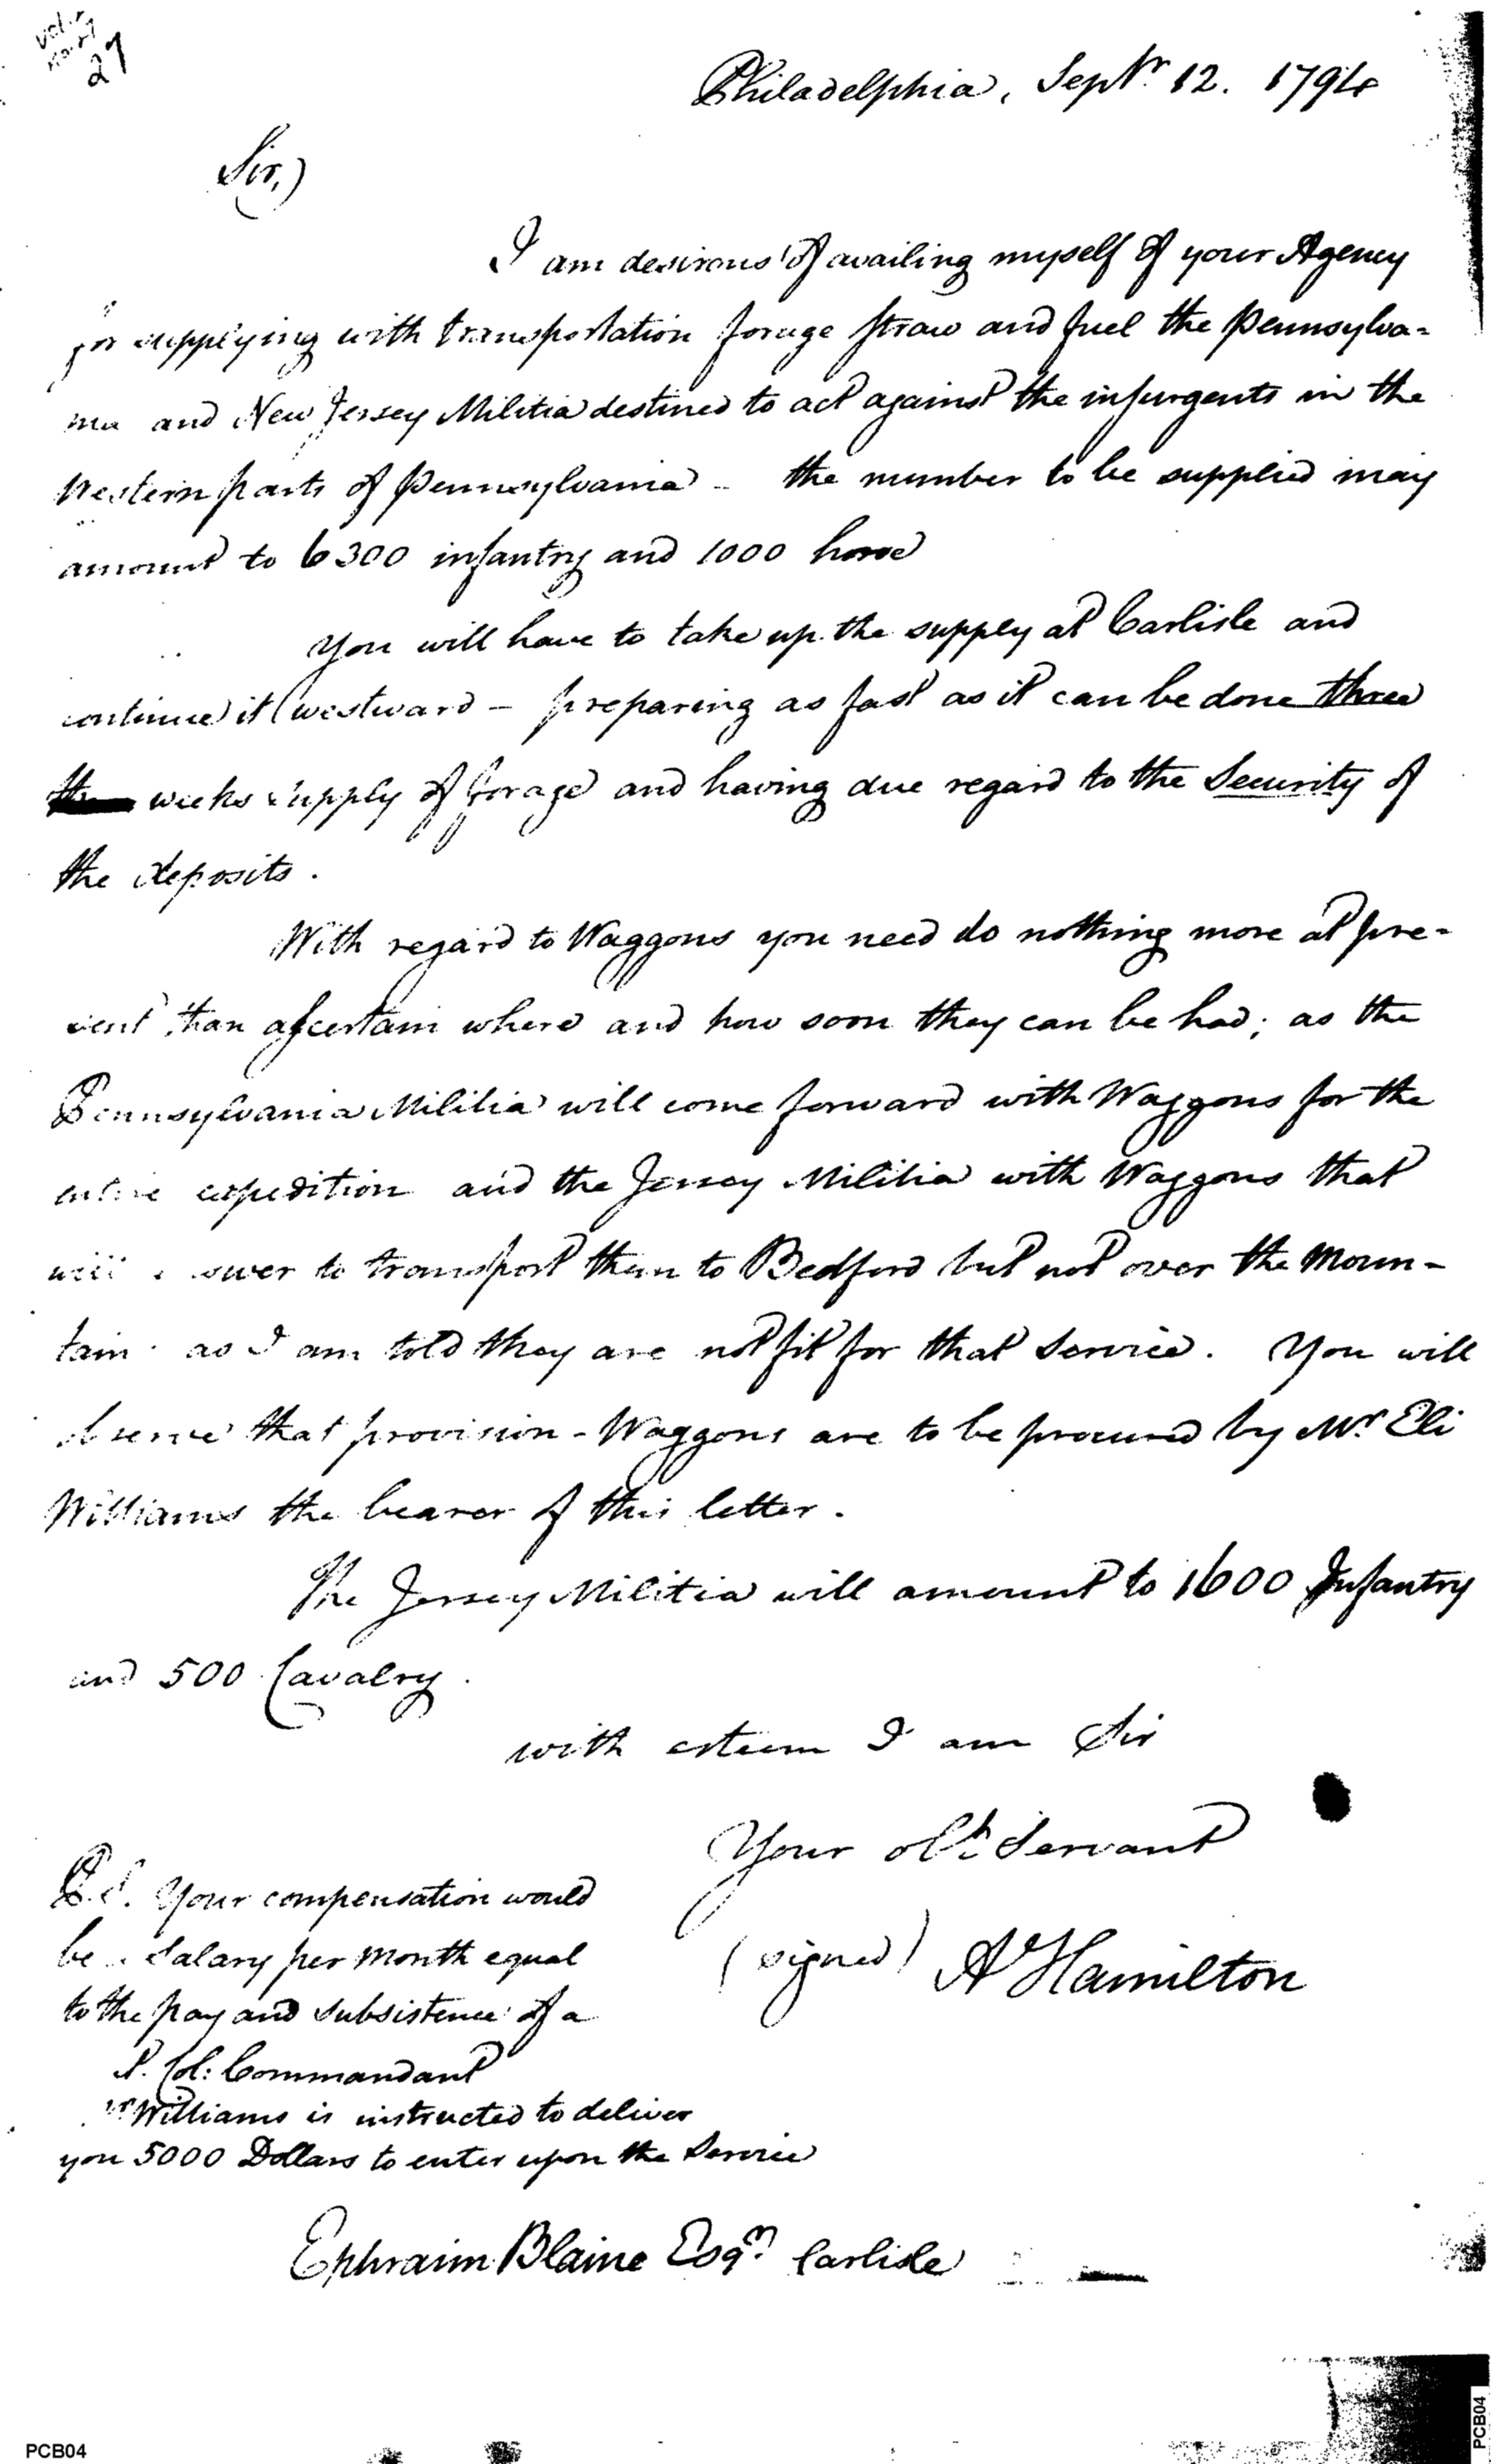 Vol. 5
No. 27
27
Philadelphia, Septr. 12. 1794
Sir,
I am desirous of availing myself of your Agency
for supplying with transportation forage straw and fuel the Pennsylva=
nia and New Jersey Militia destined to act against the insurgents in the
Western parts of Pennsylvania - the number to be supplied may
amount to 6300 infantry and 1000 horse
You will have to take up the supply at Carlisle and
continue it westward - preparing as fast as it can be done three
weeks supply of forage and having due regard to the Security of
the deposits.
With regard to Waggons you need do nothing more at pre-
sent than ascertain where and how soon they can be had; as the
Pennsylvania Militia will come forward with Waggons for the
entire expedition and the Jersey Militia with Waggons that
will answer to transport them to Bedford but not over the Moun-
tain as I am told they are not fit for that Service. You will
observe that provision-Waggons are to be procured by Mr. Eli
Williams the bearer of this letter.
The Jersey Militia will amount to 1600 Infantry
and 500 Cavalry.
with esteem I am Sir
Your obt. Servant
(signed) A Hamilton
P.S. Your compensation would
be a Salary per Month equal
to the pay and subsistence of a
Lt. Col: Commandant
Mr Williams is instructed to deliver
you 5000 Dollars to enter upon the Service
Ephraim Blaine Esqr. Carlisle
PCB04
PCB04